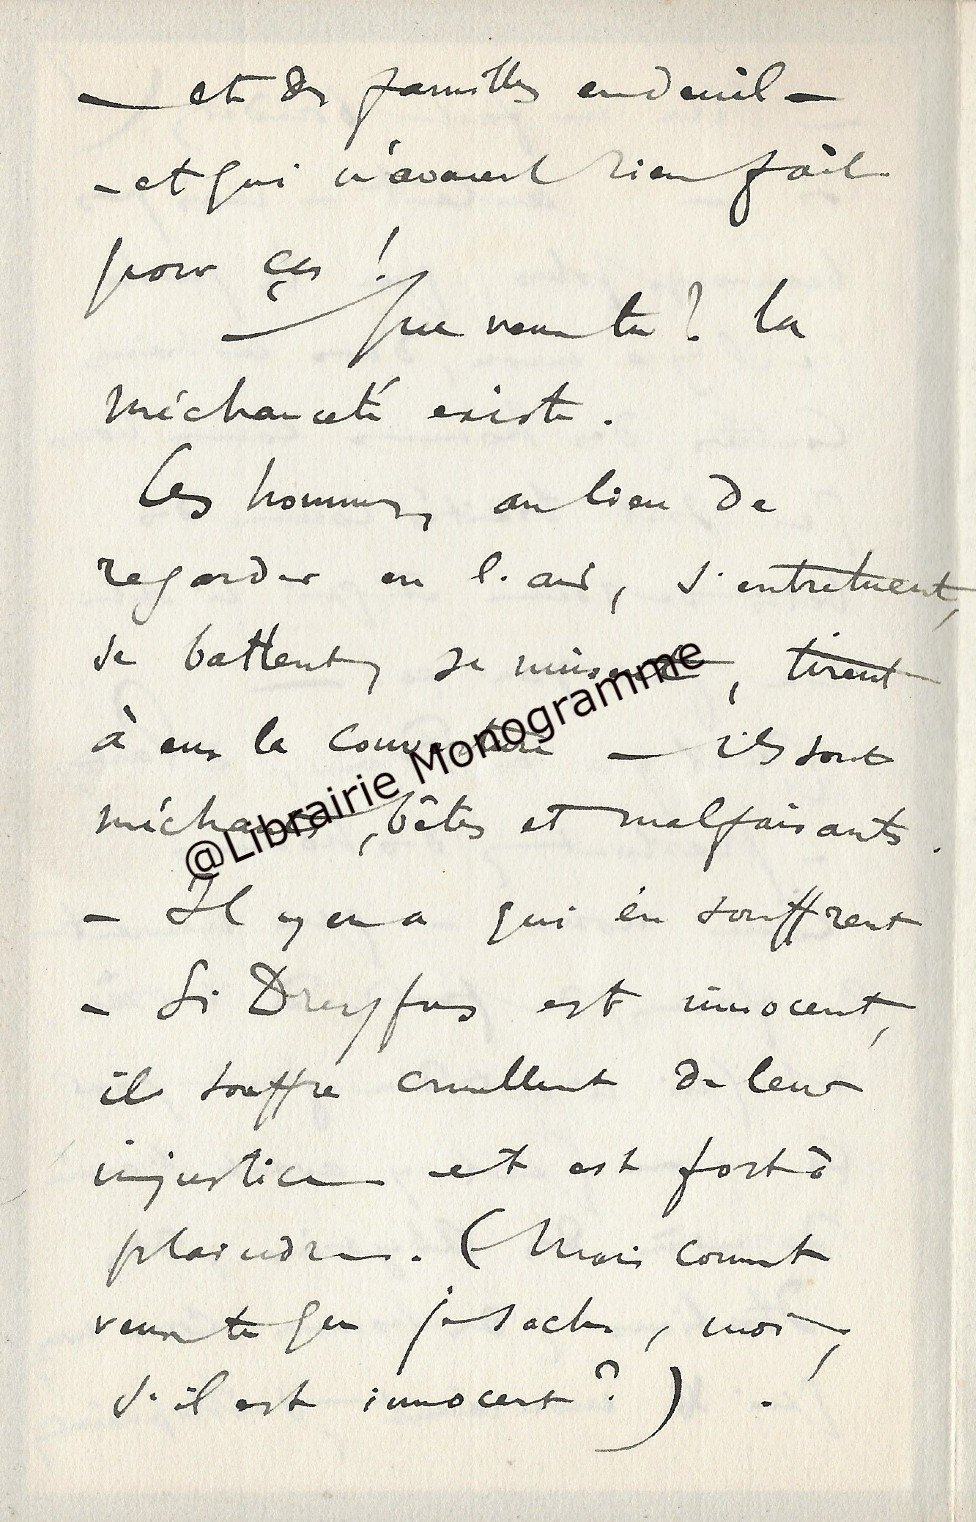 — et des familles en deuil —
– et qui n'avaient rien fait
pour ça !
— Que veux-tu ? la
méchanceté existe.
Les hommes, au lieu de
regarder en l'air, s'entretuent,
se battent, se nuisent, tirent
à eux la couverture — ils sont
méchants, bêtes et malfaisants.
@Librairie Monogramme
– Il y en a qui en souffrent
– Si Dreyfus est innocent,
il souffre cruellement de leur
injustice et est fort à
plaindre. (Mais comment
veux-tu que je sache, moi,
s'il est innocent ?) .